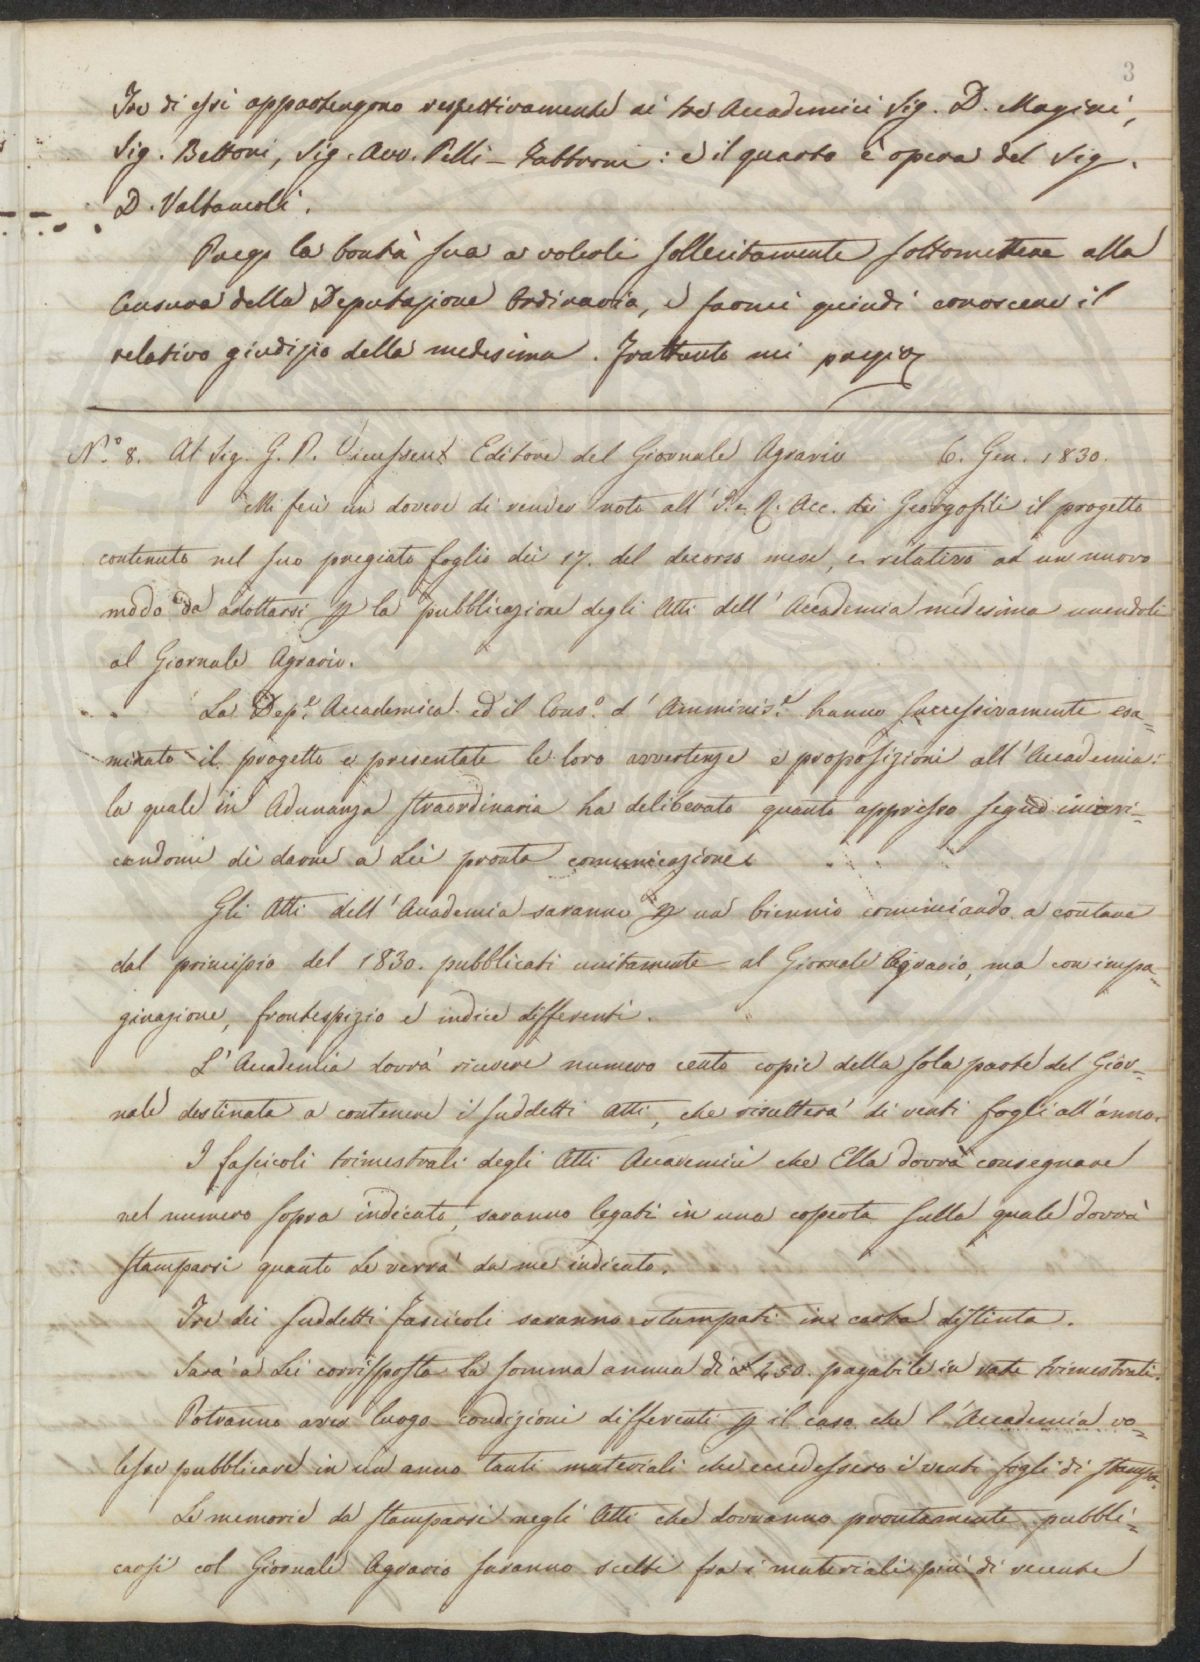 3
Tre di essi appartengono respettivamente ai tre Accademici Sig. D. Magini,
Sig. Bettoni, Sig. Avv. Pelli-Fabbroni: e il quarto è opera del Sig.
D. Valtancoli.
Prego la bontà sua a volerli sollecitamente sottomettere alla
Censura della Deputazione Ordinaria, e farmi quindi conoscere il
relativo giudizio della medesima. Frattanto mi pregio
N.º 8. Al Sig. G. P. Vieusseux Editore del Giornale Agrario 6. Gen. 1830.
Mi feci un dovere di render noto all' I. e R. Acc. dei Georgofili il progetto
contenuto nel suo pregiato foglio dei 17. del decorso mese, e relativo ad un nuovo
modo da adottarsi p la pubblicazione degli Atti dell' Accademia medesima unendoli
al Giornale Agrario.
La Dep.e Accademica ed il Cons.o d' Amminis.e hanno successivamente esa=
minato il progetto e presentate le loro avvertenze e proposizioni all' Accademia:
la quale in Adunanza straordinaria ha deliberato quanto appresso segue incari=
candomi di darne a Lei pronta comunicazione.
Gli Atti dell' Accademia saranno p un biennio cominciando a contare
dal principio del 1830. pubblicati unitamente al Giornale Agrario, ma con impa=
ginazione, frontespizio e indice differenti.
L' Accademia dovrà ricevere numero cento copie della sola parte del Gior=
nale destinata a contenere i suddetti Atti, che risulterà di venti fogli all' anno.
I fascicoli trimestrali degli Atti Accademici che Ella dovrà consegnare
nel numero sopra indicato, saranno legati in una coperta sulla quale dovrà
stamparsi quanto Le verrà da me indicato.
Tre dei suddetti fascicoli saranno stampati in carta distinta.
Sarà a Lei corrisposta la somma annua di £ 450. pagabile in rate trimestrali.
Potranno aver luogo condizioni differenti p il caso che l' Accademia vo=
lesse pubblicare in un anno tanti materiali che eccedessero i venti fogli di stampa.
Le memorie da stamparsi negli Atti che dovranno prontamente pubbli=
carsi col Giornale Agrario saranno scelte fra i materiali più di recente